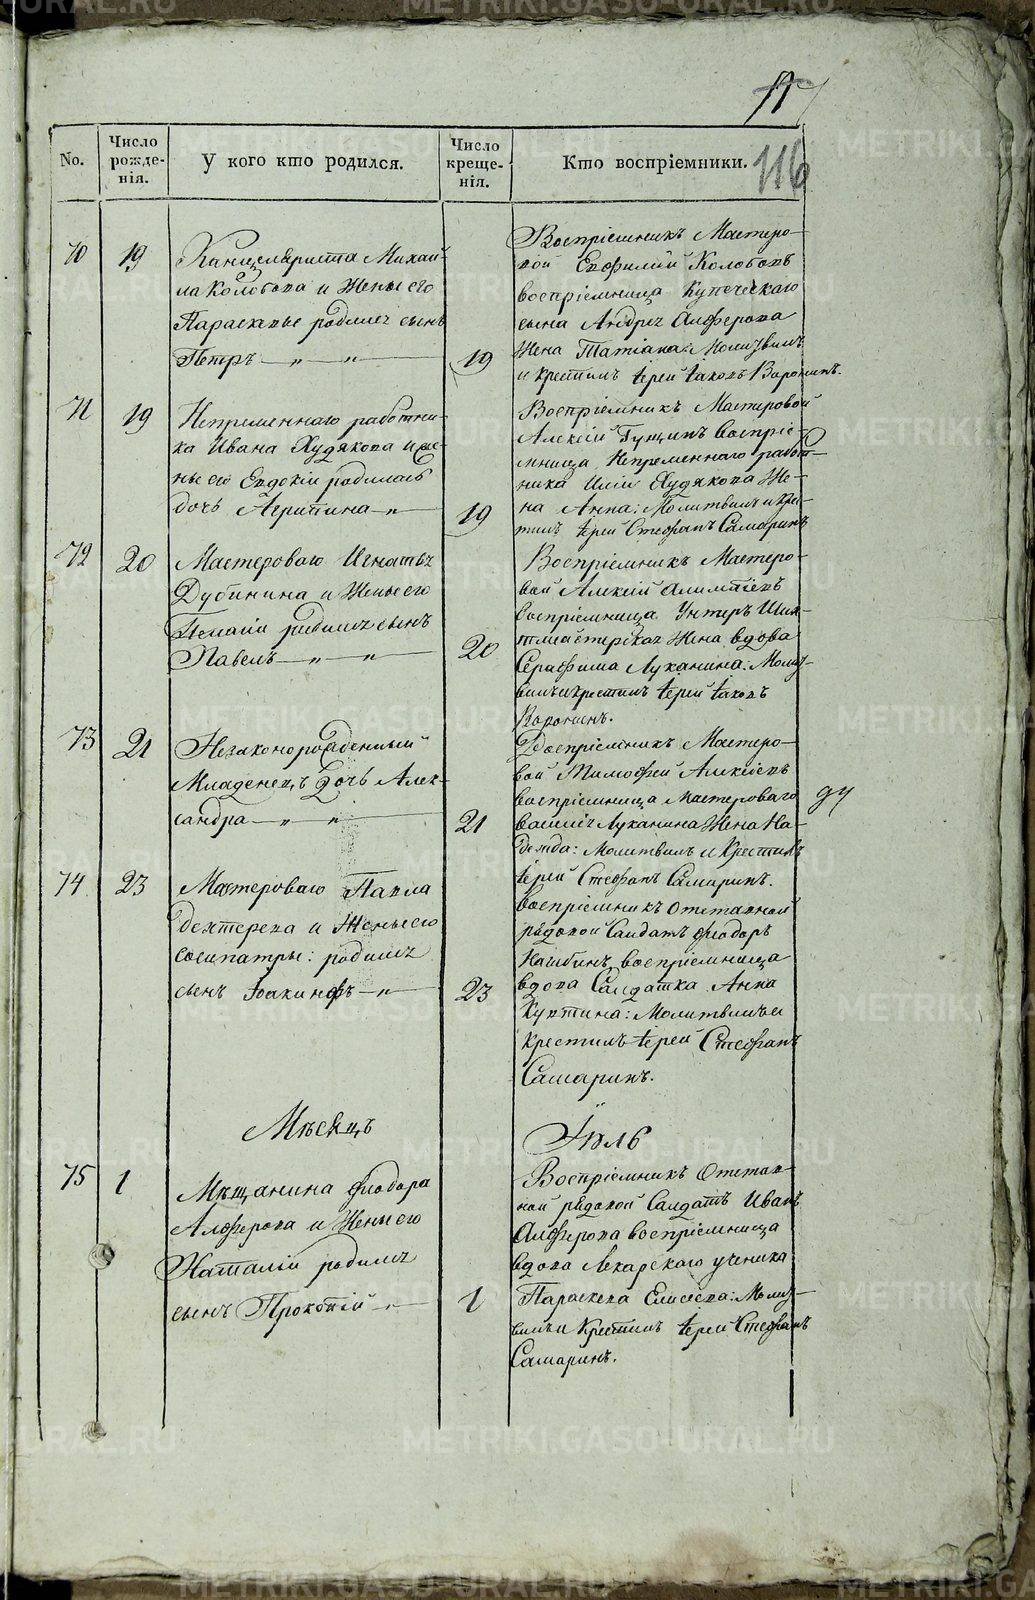 116
No.
Число рожде-нія.
У кого кто родился.
Число креще-нія.
Кто воспріемники.
70
19
Канцеляриста Михай-
ла Колобова и Жены его
Параскевы родился сынъ
Петръ — „ — „ —
19
Воспріемникъ Мастеро-
вой Колобовъ
воспріемница Купеческаго
сына Андрея Алферова
Жена Татіана: Молитвилъ
и крестилъ Іерей Іаковъ Воронинъ.
71
19
Непременнаго работни-
ка Ивана Худякова и Же-
ны его Евдокіи родилась
дочь Агрипина — „
19
Воспріемникъ Мастеровой
Алексій воспріе-
мница Непременнаго работ-
ника Иліи Худякова Же-
на Анна: Молитвилъ и кре-
стилъ Іерей Стефанъ Самаринъ
72
20
Мастероваго Игнатья
Дубинина и Жены его
родился сынъ
Павелъ — „ — „ —
20
Воспріемникъ Мастеро-
вой Алексій
воспріемница Унтеръ Ших-
тмейстерская Жена вдова
Серафима Луканина: Молит-
вилъ и крестилъ Іерей Іаковъ
Воронинъ.
73
21
Незаконорожденный
Младенецъ Дочь Алек-
сандра — „ — „ —
21
Воспріемникъ Мастеро-
вой Тимофей Алексѣевъ
воспріемница Мастероваго
Василія Луканина Жена На-
дежда: Молитвилъ и Крестилъ
Іерей Стефанъ Самаринъ.
74
23
Мастероваго Павла
Дехтерева и Жены его
Сосипатры: родился
сынъ Іоакинфъ — „ —
23
Воспріемникъ Отставной
рядовой Салдатъ Ѳіодоръ
воспріемница
вдова Салдатка Анна
Куктина: Молитвилъ и
крестилъ Іерей Стефанъ
Самаринъ.
Мѣсяцъ
Іюль
75
1
Мѣщанина Ѳіодора
Алферова и Жены его
Наталіи родился
сынъ Прокопій — „ —
1
Воспріемникъ Отстав-
ной рядовой Салдатъ Иванъ
Алферовъ воспріемница
вдова Лекарскаго ученика
Параскева Елисеева: Молит-
вилъ и Крестилъ Іерей Стефанъ
Самаринъ.
METRIKI.GASO-URAL.RU